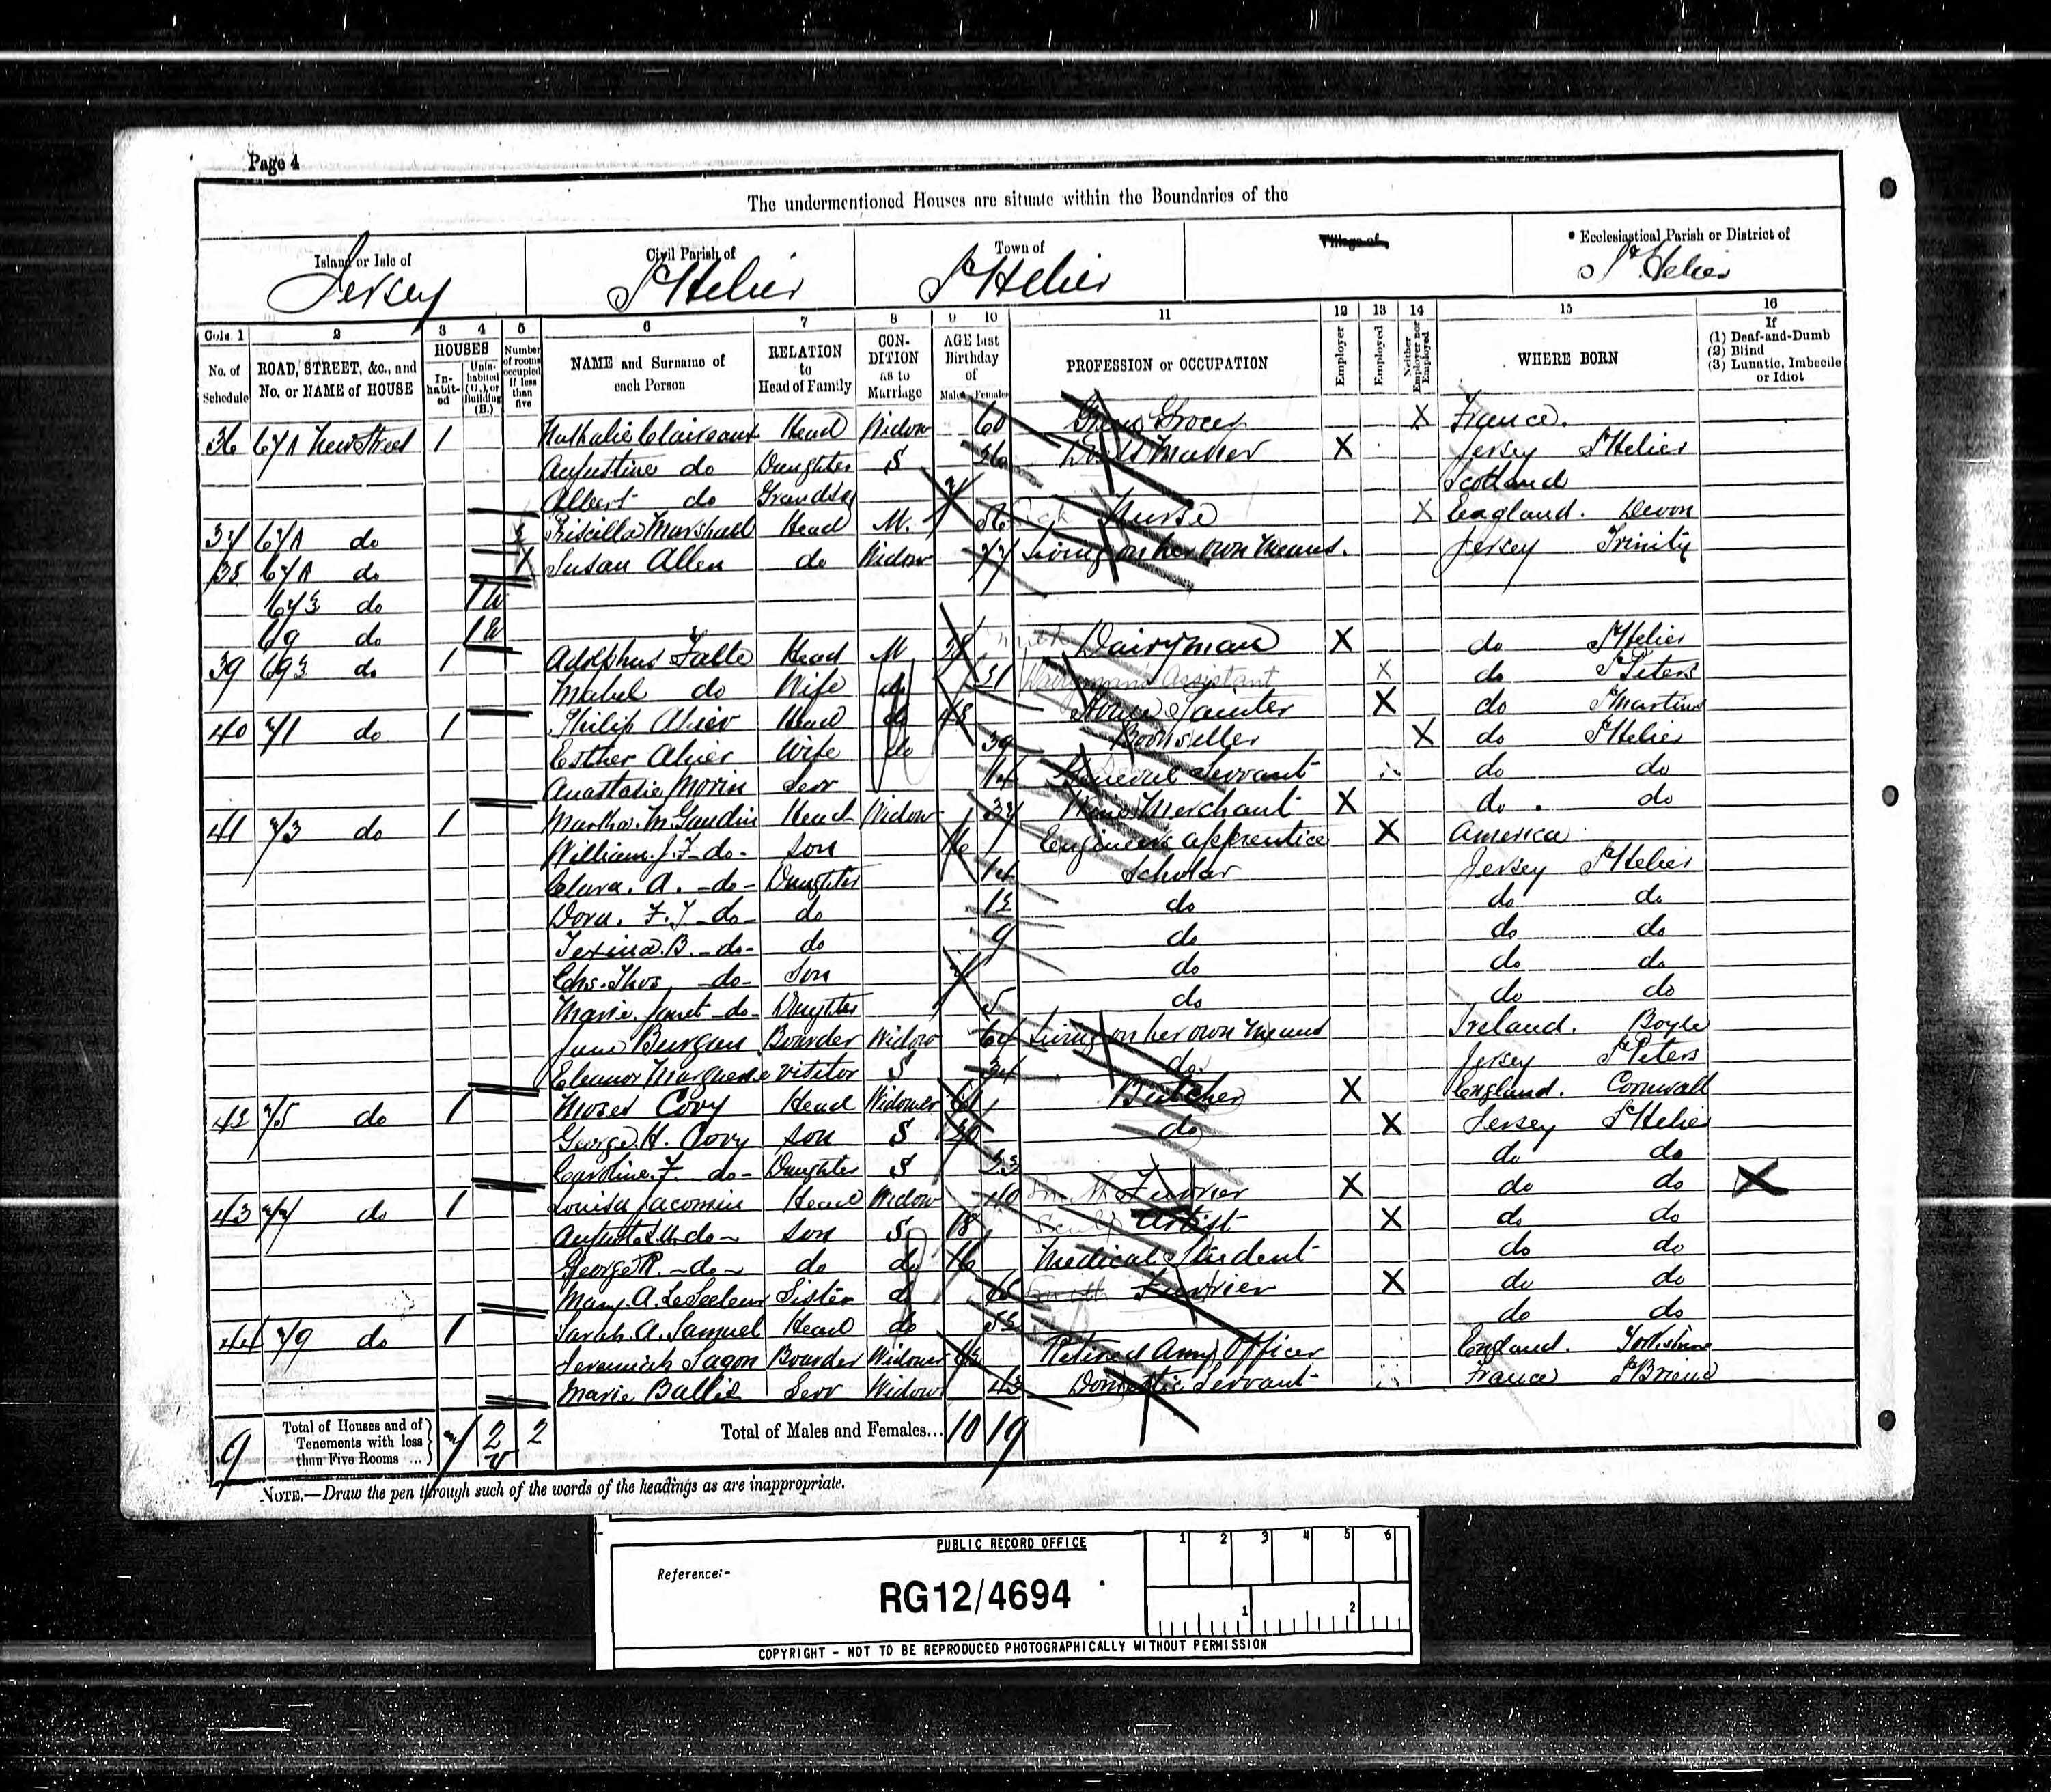 Page 4
The undermentioned Houses are situate within the Boundaries of the
Island or Isle of Civil Parish of Town of Village of * Ecclesiastical Parish or District of
Jersey St Helier St Helier St Helier
Cols. 1 2 3 4 5 6 7 8 9 10 11 12 13 14 15 16
No. of Schedule ROAD, STREET, &c., and No. or NAME of HOUSE HOUSES In-habit-ed Unin-habited (U.), or Building (B.) Number of rooms occupied if less than five NAME and Surname of each Person RELATION to Head of Family CON-DITION as to Marriage AGE last Birthday of Males Females PROFESSION or OCCUPATION Employer Employed Neither Employer nor Employed WHERE BORN If (1) Deaf-and-Dumb (2) Blind (3) Lunatic, Imbecile or Idiot
36 67A New Street 1 Nathalie Head Widow 60 Grocer X France.
Augustine do Daughter S 36 X Jersey St Helier
Albert do Grandson 7 Scotland
37 67A do 2 Priscilla Marshall Head M. 56 Sick Nurse X England. Devon
38 67A do 1 Susan Allen do Widow 77 Living on her own means. Jersey Trinity
67½ do 1 U
69 do 1 U
39 69½ do 1 Adolphus Falle Head M 28 milk Dairyman X do St Helier
Mabel do Wife do 21 Dairyman's Assistant X do St Peters
40 71 do 1 Philip Ahier Head do 48 House Painter X do St Martins
Esther Ahier Wife do 39 Bookseller X do St Helier
Anastasie Morin Serv 14 General Servant do do
41 73 do 1 Martha. M. Gaudin Head Widow 37 Wine Merchant X do do
William. J. F. -do- Son 16 Engineers apprentice X America
Clara. A. -do- Daughter 14 Scholar Jersey St Helier
Dora. F. J -do- do 12 do do do
Texina. B. -do- do 9 do do do
Chs. Thos. -do- Son 7 do do do
Marie. Janet -do- Daughter 5 do do do
Jane Burgan Boarder Widow 64 Living on her own means Ireland. Boyle
Eleanor Visitor S 34 do Jersey St Peters
42 75 do 1 Moses Cory Head Widower 61 Butcher X England. Cornwall
George. H. Cory Son S 30 do X Jersey St Helier
Caroline. F. -do- Daughter S 23 do do
43 77 do 1 Louisa Jacomin Head Widow 40 Furrier X do do X
do Son S 18 Sculp Artist X do do
George R. -do- do do 16 Medical Student do do
Mary. A. LeSeeleur Sister do Furrier X do do
44 79 do 1 Sarah. A. Samuel Head do 52 do do
Jeremiah Boarder Widower Retired Army Officer England. Yorkshire
Marie Serv Widow 43 Domestic Servant France St Brieuc
9 Total of Houses and of Tenements with less than Five Rooms ... 7 2 U 2 Total of Males and Females... 10 19
NOTE.—Draw the pen through such of the words of the headings as are inappropriate.
PUBLIC RECORD OFFICE 1 2 3 4 5 6
Reference:-
RG12/4694
1 2
COPYRIGHT - NOT TO BE REPRODUCED PHOTOGRAPHICALLY WITHOUT PERMISSION